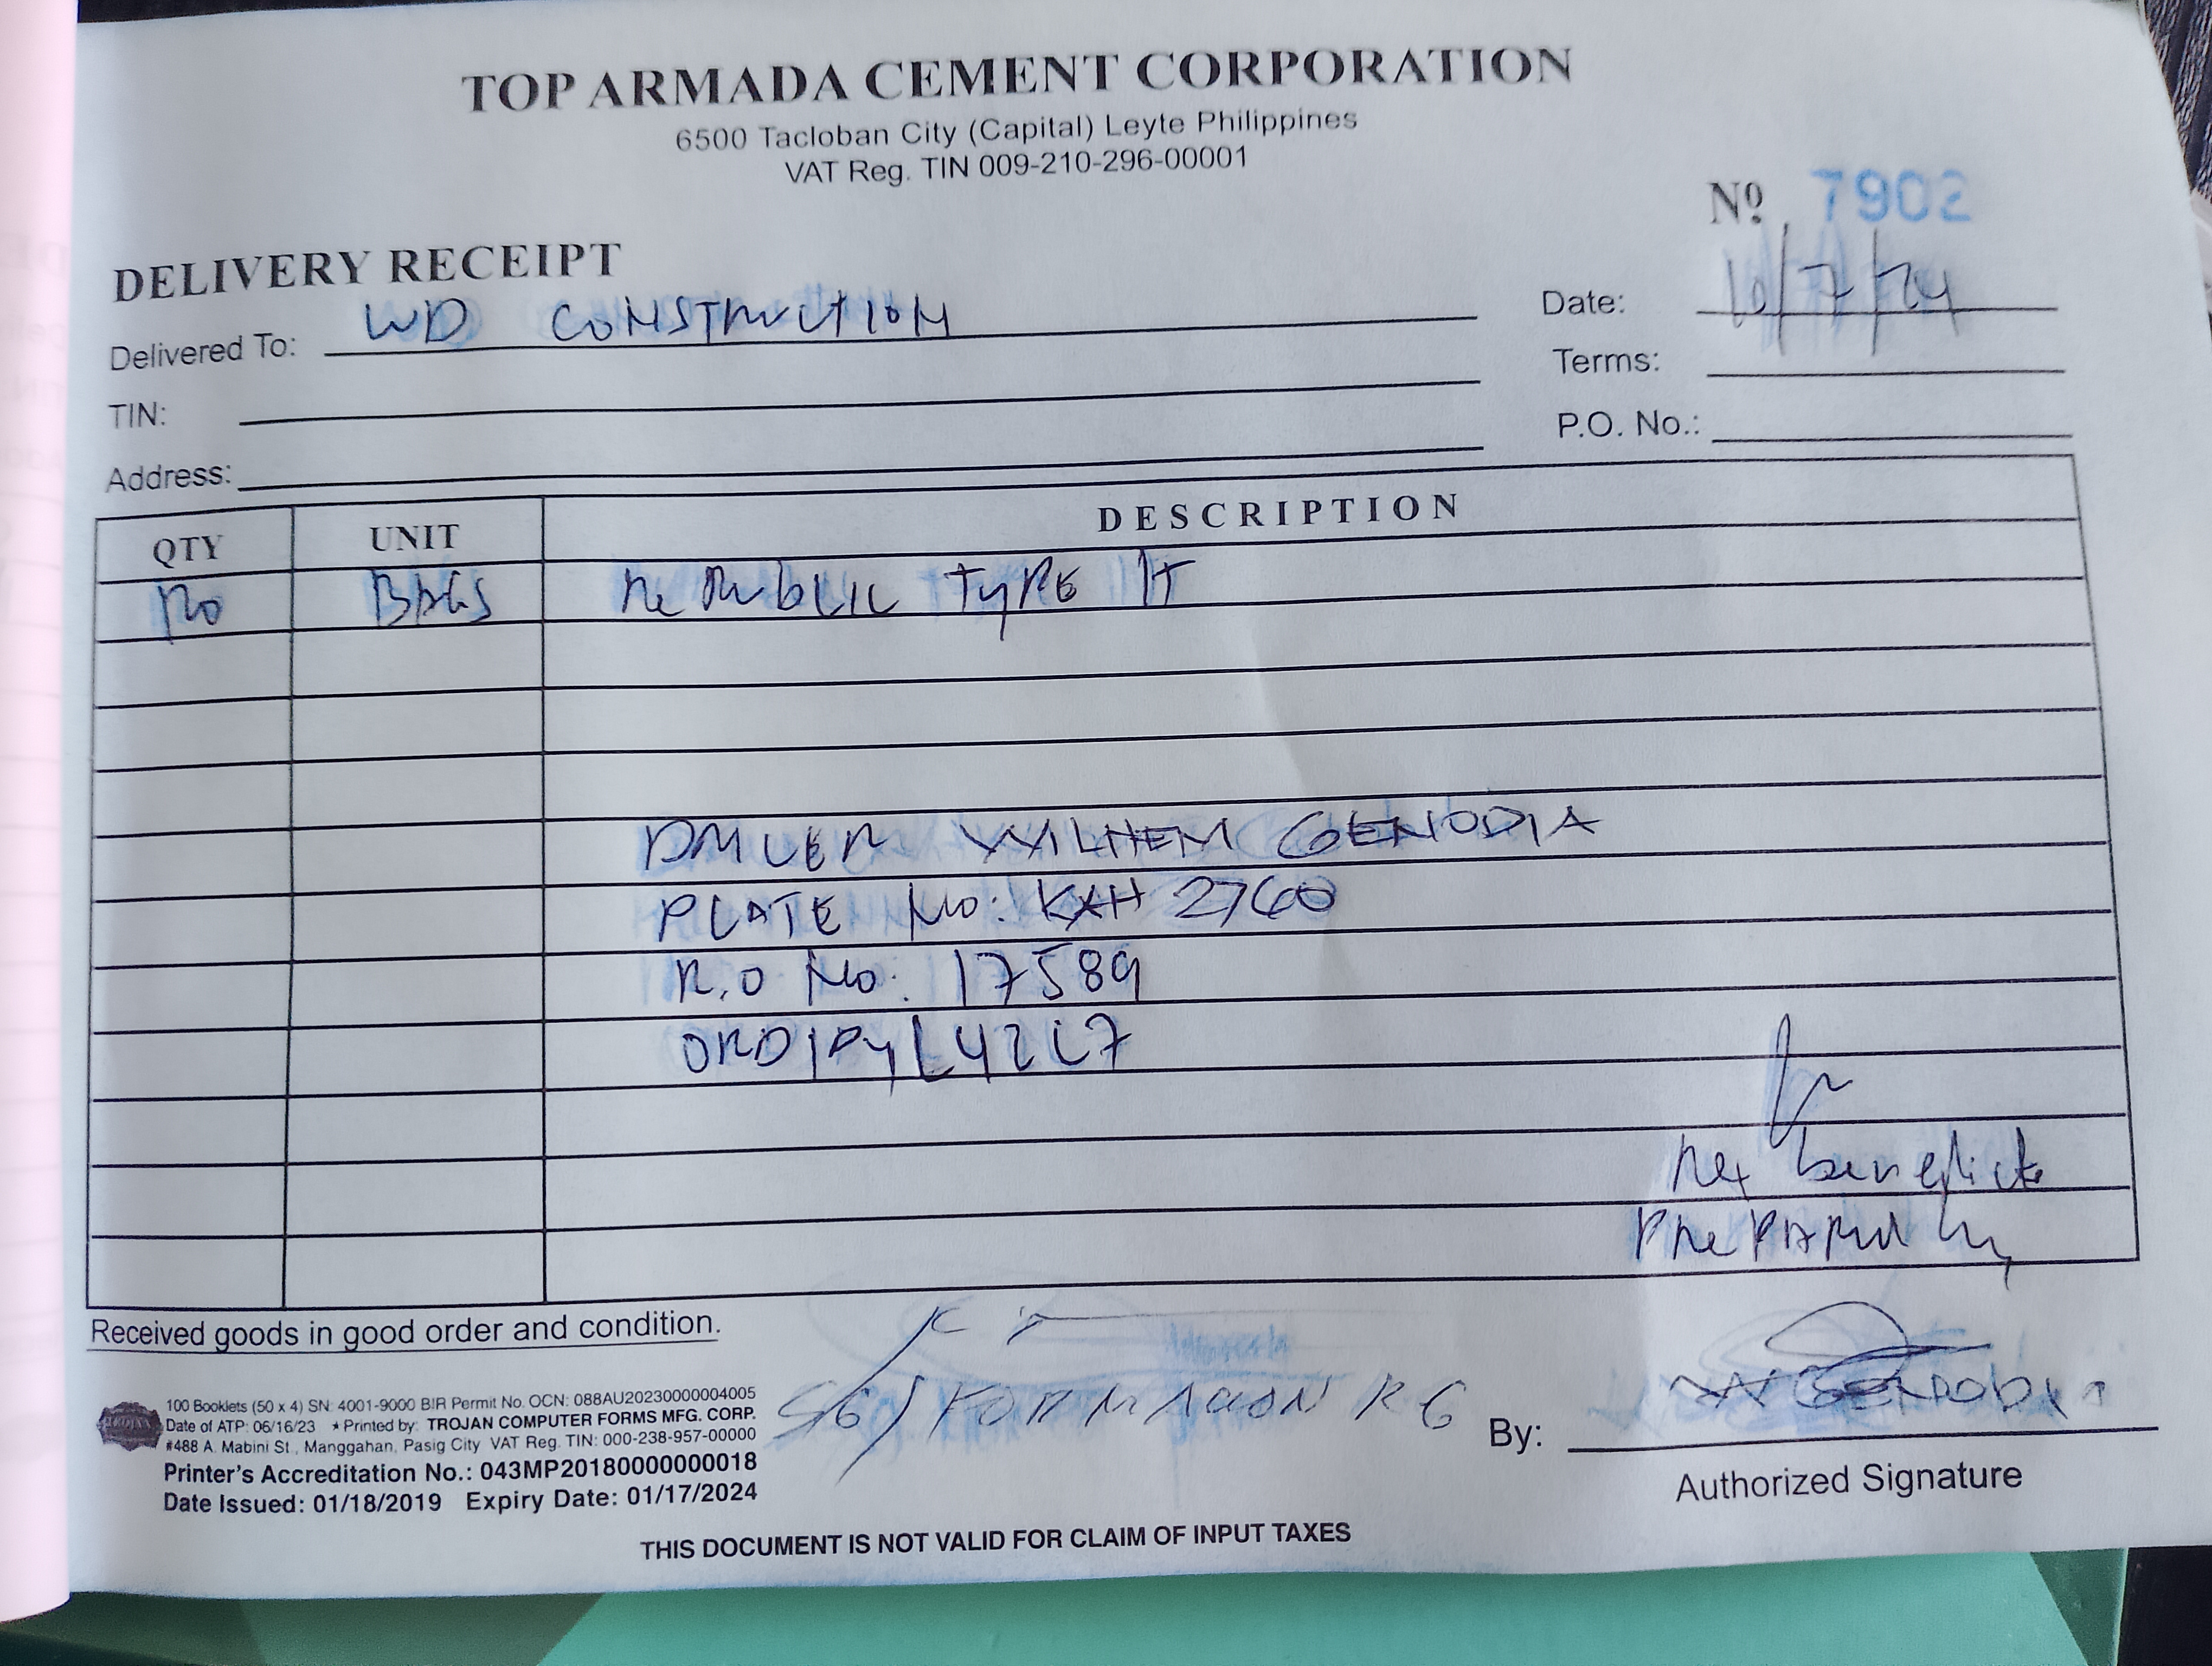 TOP ARMADA CEMENT CORPORATION
6500 Tacloban City (Capital) Leyte Philippines
VAT Reg. TIN 009-210-296-00001
Nº 7902
DELIVERY RECEIPT
Delivered To: WD CONSTRUCTION
Date: 10/7/24
TIN:
Terms:
Address:
P.O. No.:
QTY UNIT DESCRIPTION
BAGS REPUBLIC TYPE 1T
DRIVER WILHEM GENODIA
PLATE NO: KXH 2760
R.O NO: 17589
Rex
PREPARED By
Received goods in good order and condition.
100 Booklets (50 x 4) SN: 4001-9000 BIR Permit No. OCN: 088AU20230000004005
Date of ATP: 06/16/23 ★ Printed by: TROJAN COMPUTER FORMS MFG. CORP.
#488 A. Mabini St., Manggahan, Pasig City VAT Reg. TIN: 000-238-957-00000
Printer's Accreditation No.: 043MP20180000000018
Date Issued: 01/18/2019 Expiry Date: 01/17/2024
By:
Authorized Signature
THIS DOCUMENT IS NOT VALID FOR CLAIM OF INPUT TAXES